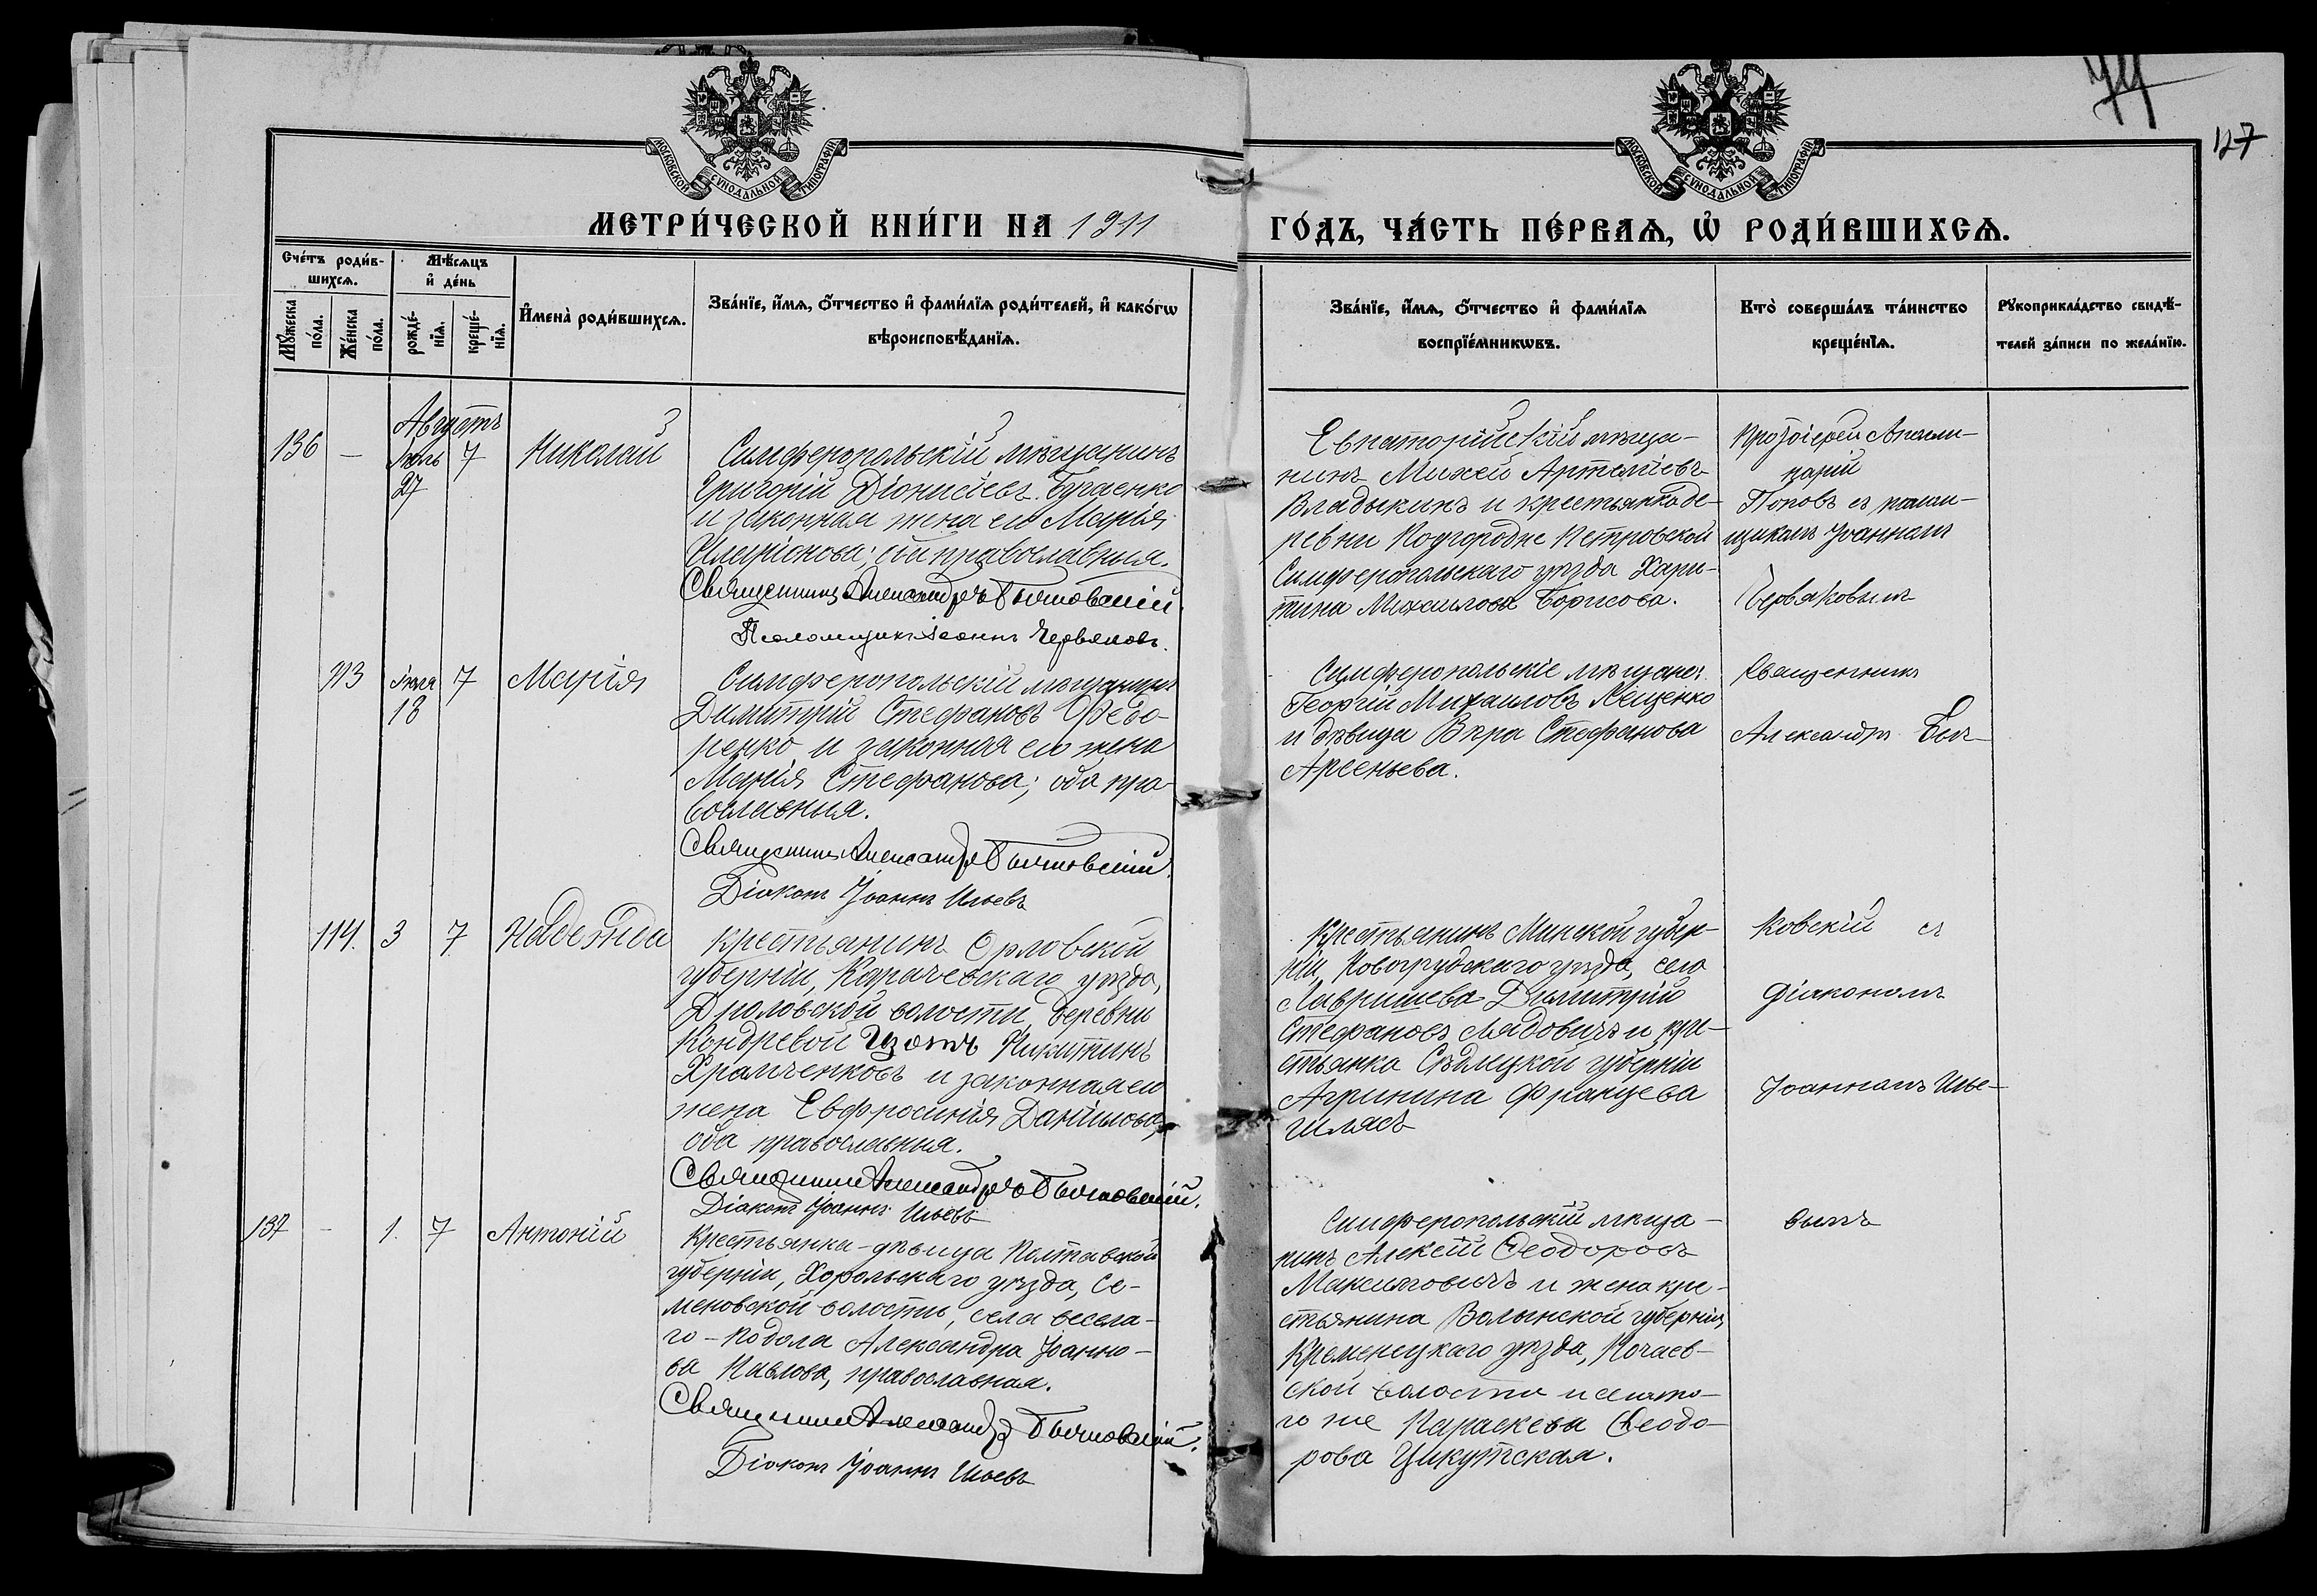 74
127
МОСКОВСКОЙ СѴНОДАЛЬНОЙ ТИПОГРАФІИ
МОСКОВСКОЙ СѴНОДАЛЬНОЙ ТИПОГРАФІИ
МЕТРИ́ЧЕСКОЙ КНИ́ГИ НА 1911
ГО́ДЪ, ЧА́СТЬ ПЕ́РВАѦ, Ѽ РОДИ́ВШИХСѦ.
Сче́тъ роди́в-
шихсѧ.
Мꙋ́жеска
по́ла.
Же́нска
по́ла.
Мѣ́сѧцъ
и҆ де́нь
рожде́-
нїѧ.
креще́-
нїѧ.
И҆мена̀ роди́вшихсѧ.
Зва́нїе, и҆́мѧ, ѻ҆́тчество и҆ фами́лїѧ роди́телей, и҆ како́гѡ
вѣроисповѣ́данїѧ.
Зва́нїе, и҆́мѧ, ѻ҆́тчество и҆ фами́лїѧ
воспрїе́мникѡвъ.
Кто̀ соверша́лъ та́инство
креще́нїѧ.
Рꙋкоприкла́дство свидѣ́-
телей за́писи по жела́нїю.
Августъ
136
—
Іюль
27
7
Николай
Симферопольскій мѣщанинъ
Григорій Діонисіевъ Бугаенко
и законная жена его Марія
Иларіонова; оба православныя.
Священникъ Александръ Бычковскій.
Псаломщикъ Іоаннъ Червяковъ.
Евпаторійскій мѣща-
нинъ Михей Артеміевъ
Владыкинъ и крестьянка де-
ревни Подгородне Петровской
Симферопольскаго уѣзда Хари-
тина Михаилова Борисова.
Протоіерей Аполли-
нарій
Поповъ съ псалом-
щикомъ Іоанномъ
Червяковымъ
113
Іюля
18
7
Марія
Симферопольскій мѣщанинъ
Димитрій Стефановъ Ѳедо-
ренко и законная его жена
Марія Стефанова; оба пра-
вославныя.
Священникъ Александръ Бычковскій.
Діаконъ Іоаннъ Ильевъ
Симферопольскіе мѣщане:
Георгій Михаиловъ Лещенко
и дѣвица Вѣра Стефанова
Арсеньева.
Священникъ
Александръ Быч-
114.
3
7
Надежда
Крестьянинъ Орловской
губерніи, Карачевскаго уѣзда,
Дроловской волости деревни
Кондревой Изотъ Никитинъ
Храмченковъ и законная его
жена Евфросинія Даніилова,
оба православныя.
Священникъ Александръ Бычковскій.
Діаконъ Іоаннъ Ильевъ
Крестьянинъ Минской губер-
ніи, Новогрудскаго уѣзда, села
Лавришева Димитрій
Стефановъ Лядовичъ и кре-
стьянка Сѣдлецкой губерніи
Агрипина Францева
Шлясъ
ковскій съ
діакономъ
Іоанномъ Илье-
137
—
1.
7
Антоній
Крестьянка-дѣвица Полтавской
губерніи, Хорольскаго уѣзда, Се-
меновской волости, села Весела-
го-Подола Александра Іоанно-
ва Павлова, православная.
Священникъ Александръ Бычковскій.
Діаконъ Іоаннъ Ильевъ
Симферопольскій мѣща-
нинъ Алексій Ѳеодоровъ
Максимовичъ и жена кре-
стьянина Волынской губерніи,
Кременецкаго уѣзда, Почаев-
ской волости и села то-
го же Параскева Ѳеодо-
рова Цикутская.
вымъ